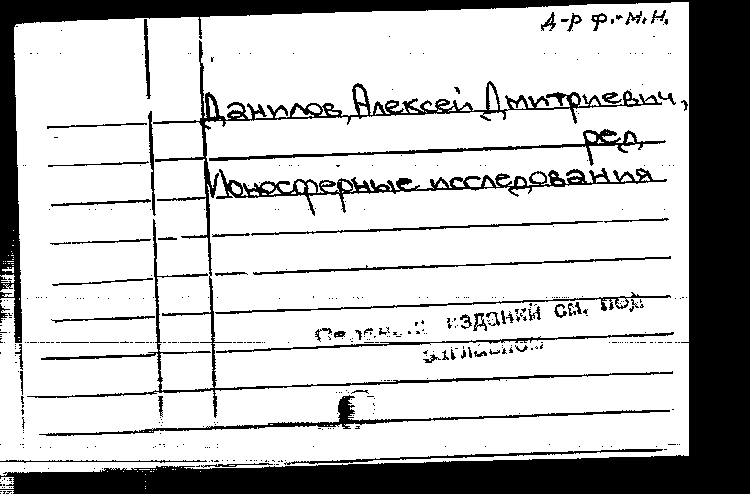 д-р ф.-м.н.
Данилов, Алексей Дмитриевич,
ред.
Ионосферные исследования
изданий см. под
заглавием